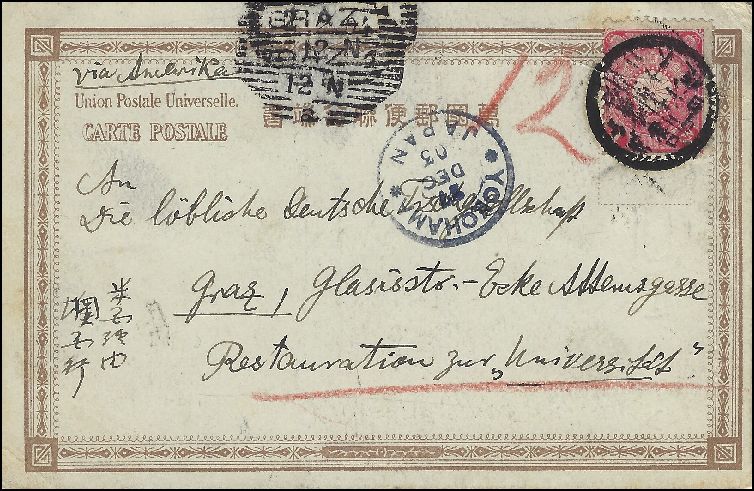 GRAZ
12•N
12 N
via Amerika
Union Postale Universelle.
CARTE POSTALE
萬國郵便聯合端書
12
YOKOHAMA
JAPAN
DEC
05
An
Die löbliche Deutsche Tischgesellschaft
Graz, Glacisstr.-Ecke Attemsgasse
Restauration zur „Universität"
米国経由